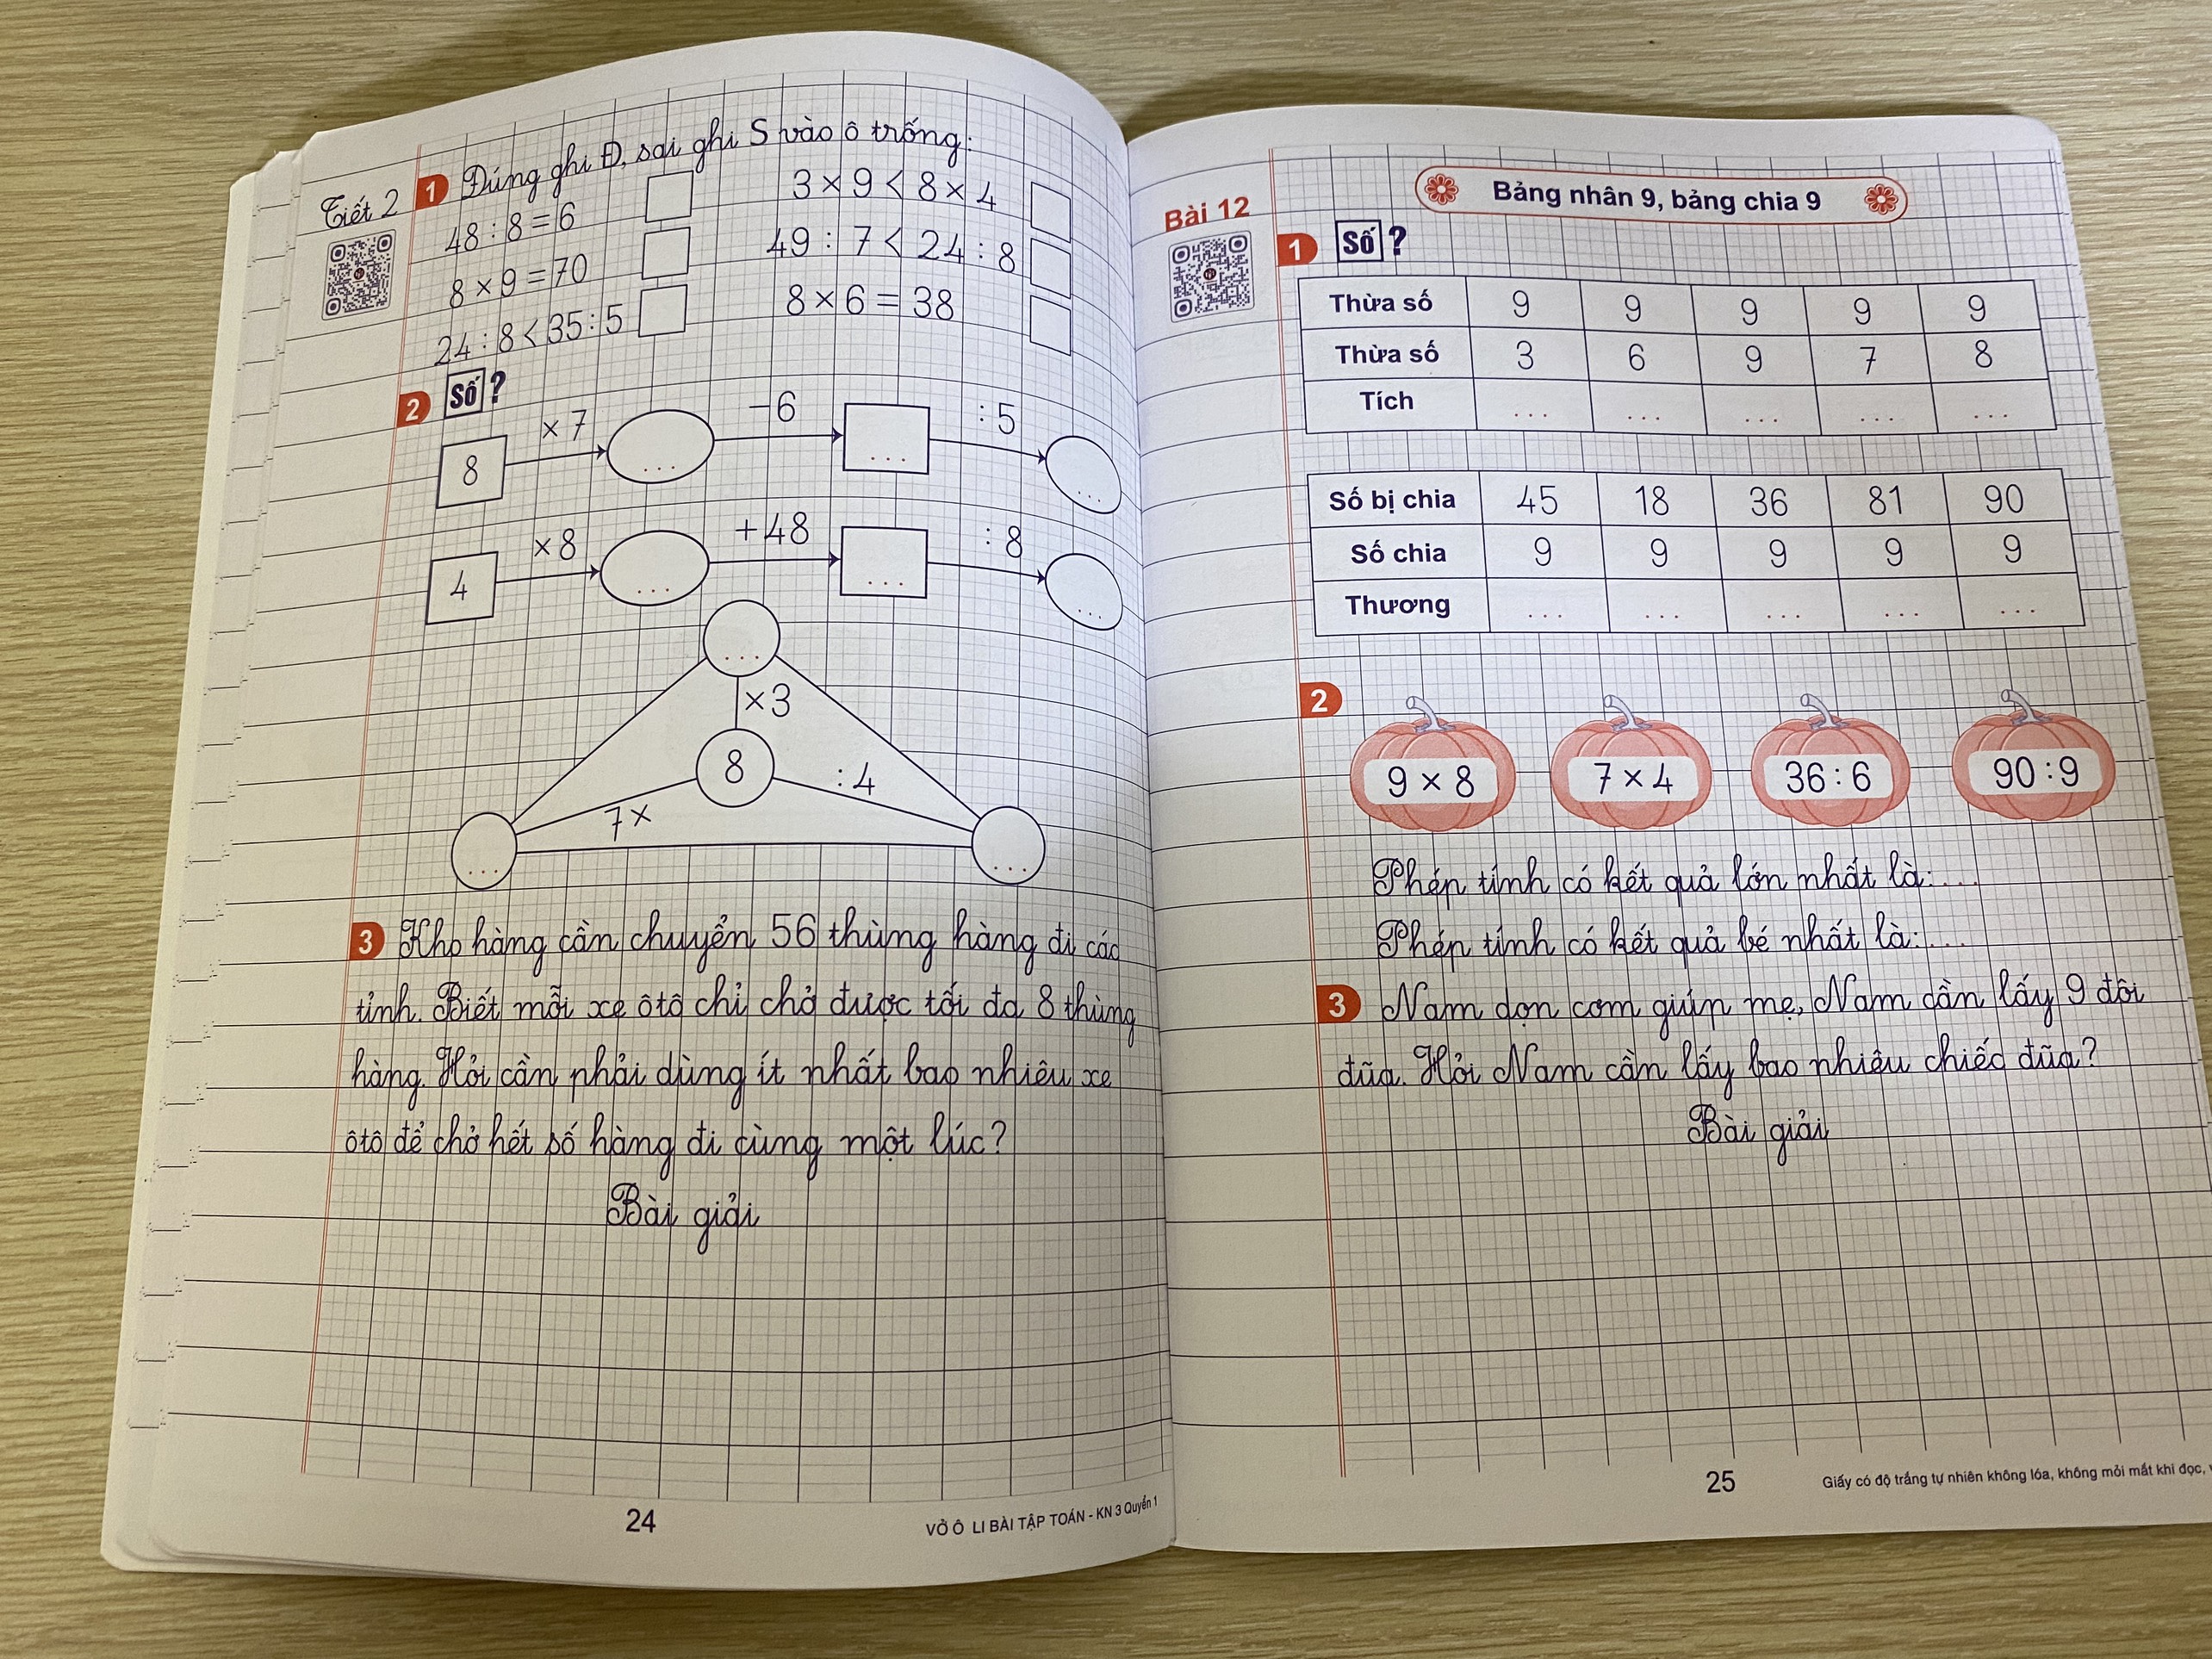 Tiết 2
1 Đúng ghi Đ, sai ghi S vào ô trống:
48 : 8 = 6
3 × 9 < 8 × 4
8 × 9 = 70
49 : 7 < 24 : 8
24 : 8 < 35 : 5
8 × 6 = 38
2 Số ?
8 × 7 ... − 6 ... : 5 ...
4 × 8 ... + 48 ... : 8 ...
...
× 3
8
: 4
7 ×
... ...
3 Kho hàng cần chuyển 56 thùng hàng đi các
tỉnh. Biết mỗi xe ôtô chỉ chở được tối đa 8 thùng
hàng. Hỏi cần phải dùng ít nhất bao nhiêu xe
ôtô để chở hết số hàng đi cùng một lúc?
Bài giải
24
VỞ Ô LI BÀI TẬP TOÁN - KN 3 Quyển 1
Bài 12
Bảng nhân 9, bảng chia 9
1 Số ?
Thừa số 9 9 9 9 9
Thừa số 3 6 9 7 8
Tích ... ... ... ... ...
Số bị chia 45 18 36 81 90
Số chia 9 9 9 9 9
Thương ... ... ... ... ...
2
9 × 8 7 × 4 36 : 6 90 : 9
Phép tính có kết quả lớn nhất là: ...
Phép tính có kết quả bé nhất là: ...
3 Nam dọn cơm giúp mẹ, Nam cần lấy 9 đôi
đũa. Hỏi Nam cần lấy bao nhiêu chiếc đũa?
Bài giải
25
Giấy có độ trắng tự nhiên không lóa, không mỏi mắt khi đọc,